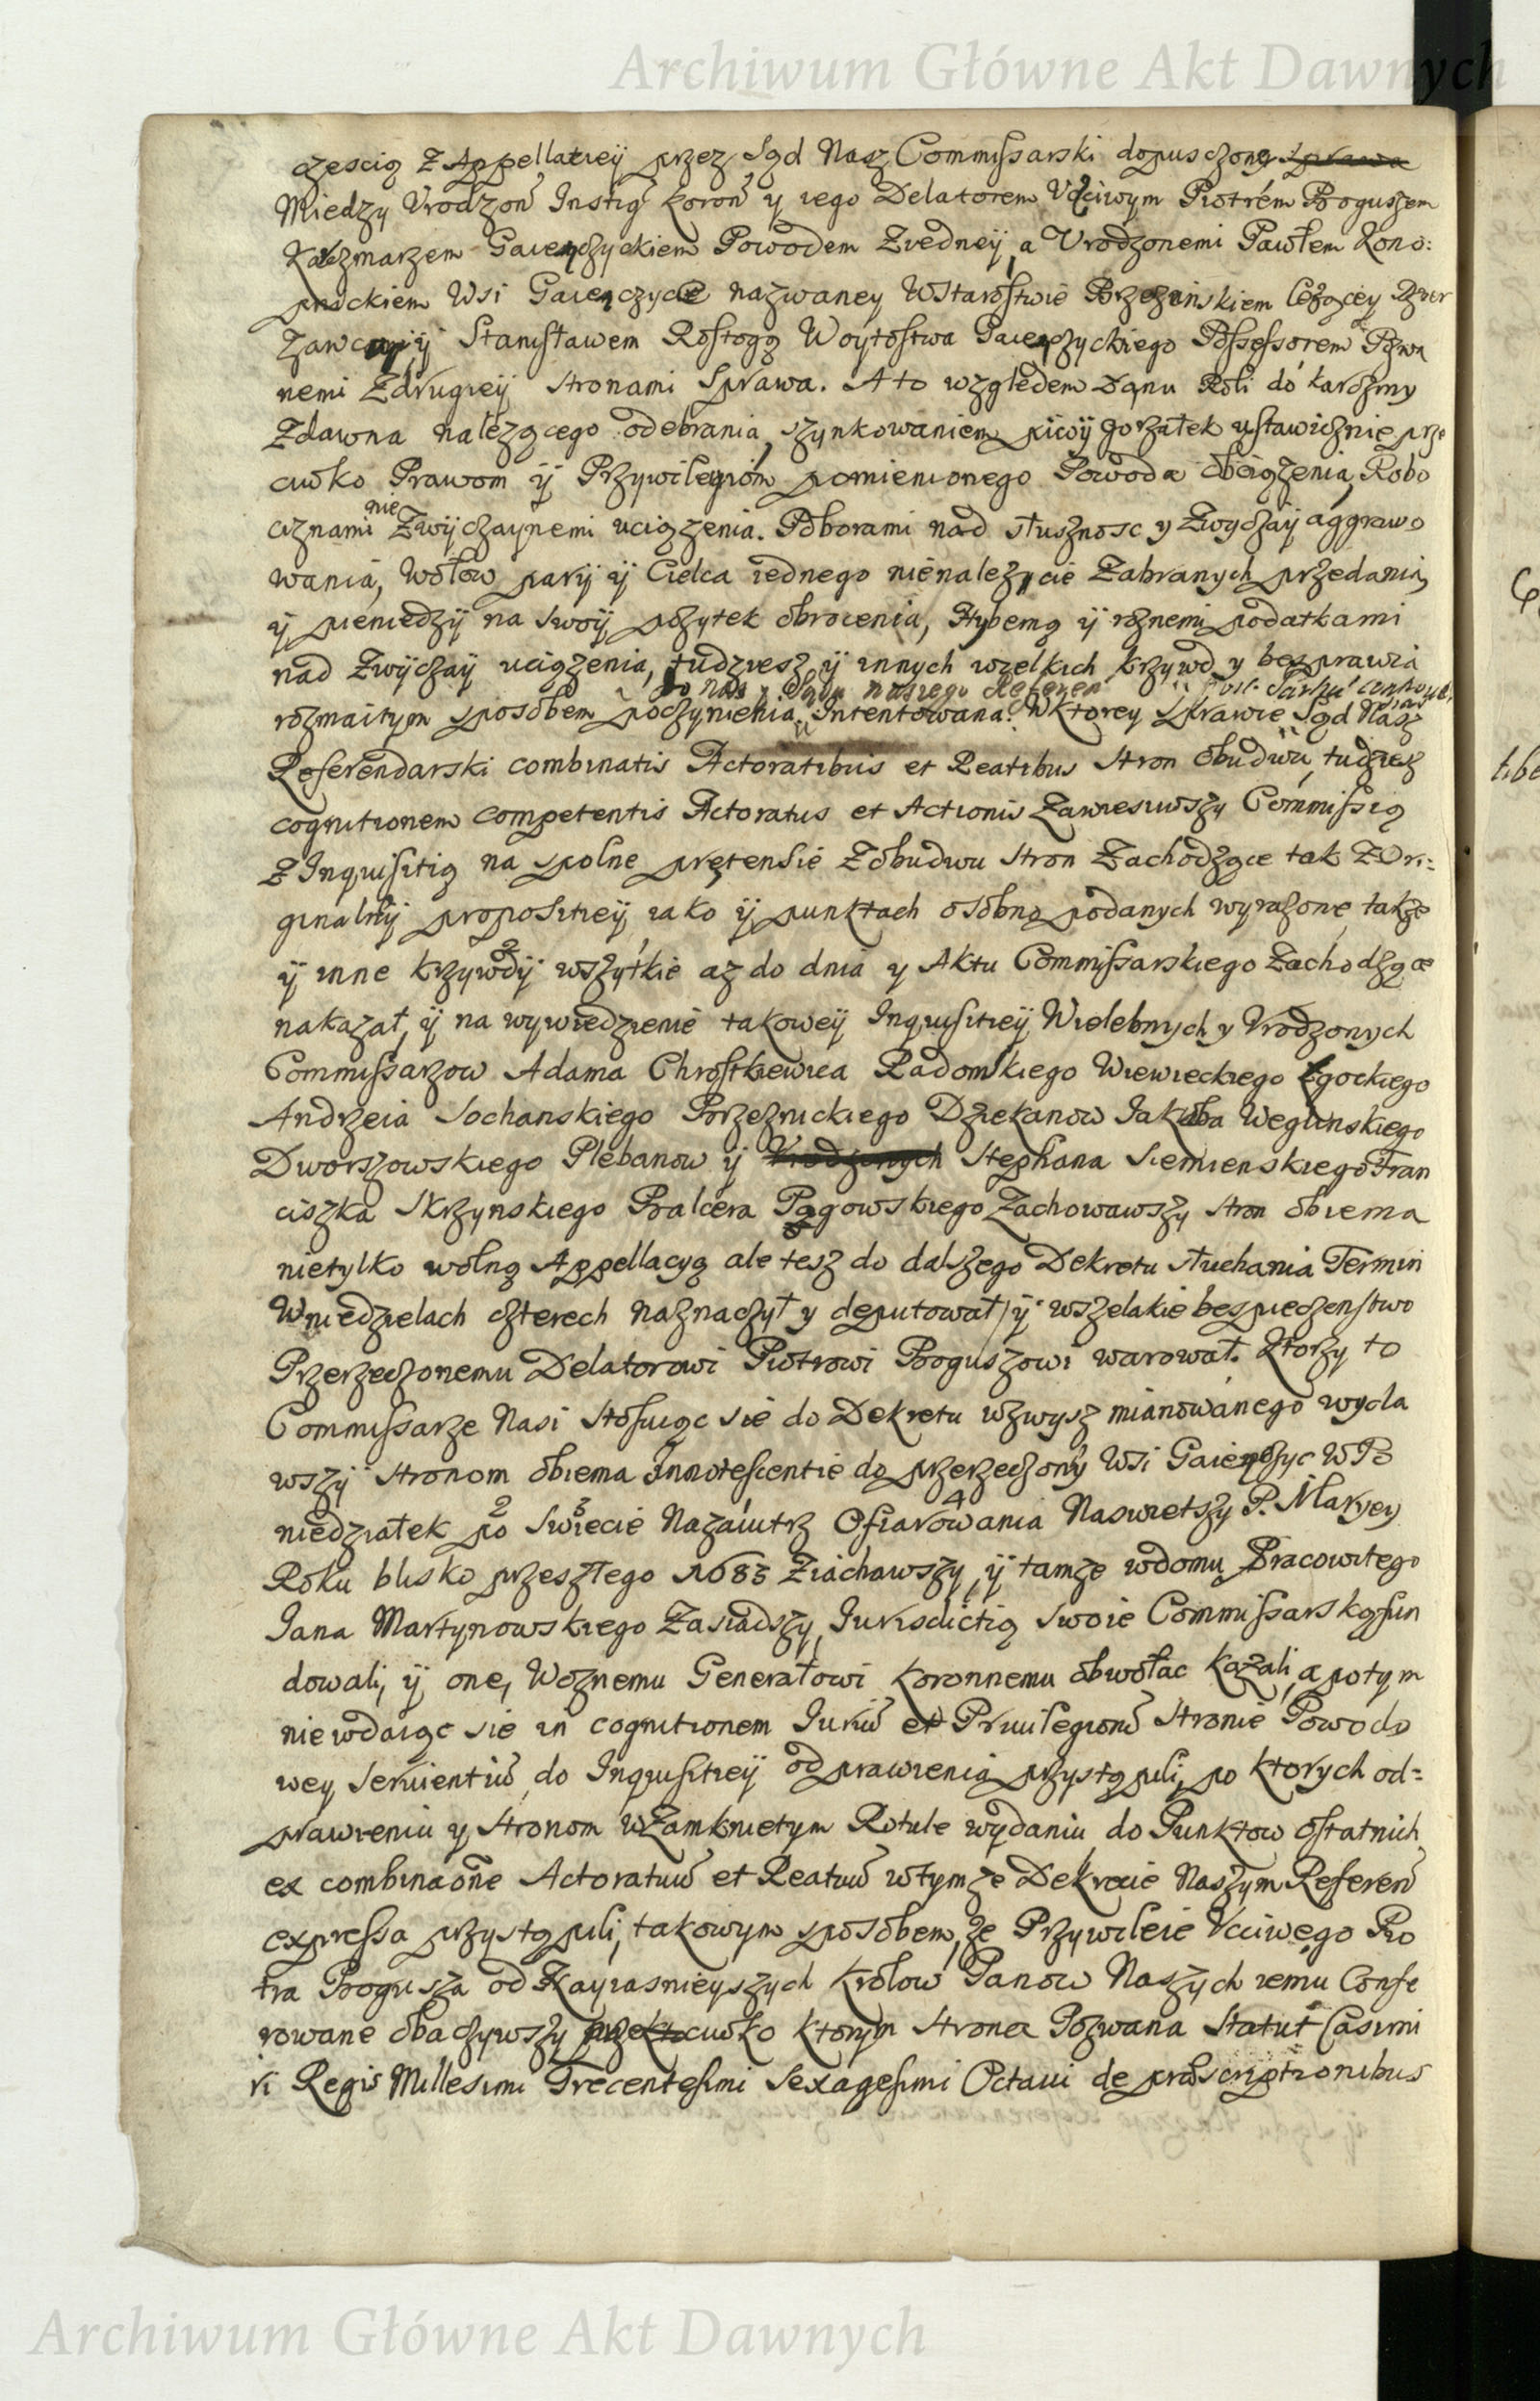 Archiwum Główne Akt Dawnych
częscią z Appellatieÿ przez Sąd Nasz Commissarski dopusczoną Sprawa
Miedzy Vrodzon̄ Instig̃ Koron̄ y iego Delatorem Vcciwym Piotrem Boguszem
Karczmarzem Gaieńczyckiem Powodem z iedneÿ, a Vrodzonemi Pawłem Kono:
pnickiem Wsi Gaieńczyce nazwaney W Starostwie Brzezinskiem leżącey Dzier
zawcą ÿ Stanisławem Rostogą Woytostwa Gaieńczyckiego Possessorem Pozwa
nemi z drugieÿ stronami Sprawa. A to względem Łanu Roli do karczmy
zdawna należącego odebrania, szynkowaniem piwÿ gorzałek ustawicznie prze
ciwko Prawom ÿ Przywilegiom pomienionego Powoda obciązenia, Robo
ciznami nie zwÿczaynemi uciązenia. Poborami nad słusznosc y zwyczaÿ aggrawo
wania, Wołow parÿ ÿ Cielca iednego nienależycie zabranych przedania
ÿ pieniedzÿ na swoÿ pozytek obrocenia, Hybemą ÿ roznemi podatkami
nad zwÿczaÿ uciązenia, tudziesz ÿ innych wzelkich krzywd y bezprawia
do nas y Sądu naszego Referen
rozmaitym sposobem poczynienia Intentowana. W ktorey Sprawie Sąd Nasz
Referendarski combinatis Actoratibus et Reatibus stron obudwu, tudziez
cognitionem competentis Actoratus et Actionis zawiesiwszy Commissią
z Inquisitią na spolne pretensie z obudwu stron zachodzące tak z Ori:
ginalnÿ propositieÿ iako ÿ punktach osobno podanych wyrazone także
ÿ inne krzywdÿ wszytkie az do dnia y Aktu Commissarskiego zachodzące
nakazał, ÿ na wywiedzienie takoweÿ Inquisitieÿ Wielebnych y Vrodzonych
Commissarzow Adama Chrostkiewica Radomskiego Wiewieckiego Łgockiego
Andrzeia Sochanskiego Brzeznickiego Dziekanow Iakuba Weglinskiego
Dworszowskiego Plebanow ÿ Vrodzonych Stephana Siemienskiego Fran
ciszka Skrzynskiego Balcera Pągowskiego zachowawszy stron obiema
nietylko wolną Appellacyą ale tesz do dalszego Dekretu słuchania Termin
W niedzielach czterech naznaczył y deputował, ÿ wszelakie bespieczenstwo
Przerzeczonemu Delatorowi Piotrowi Boguszowi warował. Ktorzy to
Commissarze Nasi stosuiąc sie do Dekretu wzwysz mianowanego wyda
wszÿ stronom obiema Innotescentie do przerzeczonÿ Wsi Gaieńczyc W Po
niedziałek po 2 Swiecie 3 Nazaiutrz Ofiarowania 4 Naswietszy P. Maryey
Roku blisko przeszłego 1683 ziachawszy, ÿ tamze w domu Pracowitego
Iana Martynowskiego zasiadszy, Iurisdictią swoie Commissarską fun
dowali, ÿ one, Woznemu Generałowi Koronnemu obwołac kazali, a potym
niewdaiąc sie in cognitionem Iuriū et Priuilegiorū stronie Powodo
wey seruientiū do Inquisitieÿ odprawienia przystąpili, po ktorych od=
prawieniu y stronom w zamknietym Rotule wydaniu do Punktow ostatnich
ex combinaōne Actoratuū et Reatuū w tymze Dekrecie Naszym Referen̄
expressa przystąpili, takowym sposobem, że Przywileie Vcciwego Pio
tra Bogusza od Nayiasnieyszych Krolow Panow Naszych iemu Confe
rowane obaczywszy przeciwko ktorym strona Pozwana Statut Casimi
ri Regis Millesimi Trecentesimi Sexagesimi Octaui de præscriptionibus
Archiwum Główne Akt Dawnych